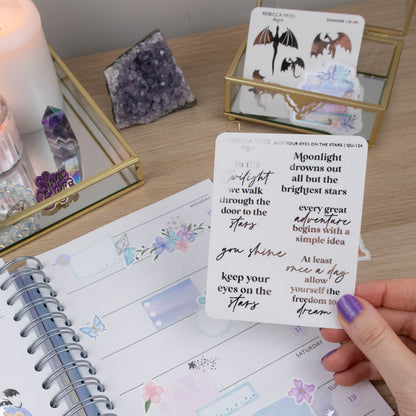 REBECCA YATES
DRAGONS | Q-151
KEEP YOUR EYES ON THE STARS | QU-124
twilight
we walk
through the
door to the
stars
you shine
keep your
eyes on the
stars
Moonlight
drowns out
all but the
brightest stars
every great
adventure
begins with a
simple idea
At least
once a day
allow
yourself the
freedom to
dream
MONDAY
SATURDAY
SUNDAY
19